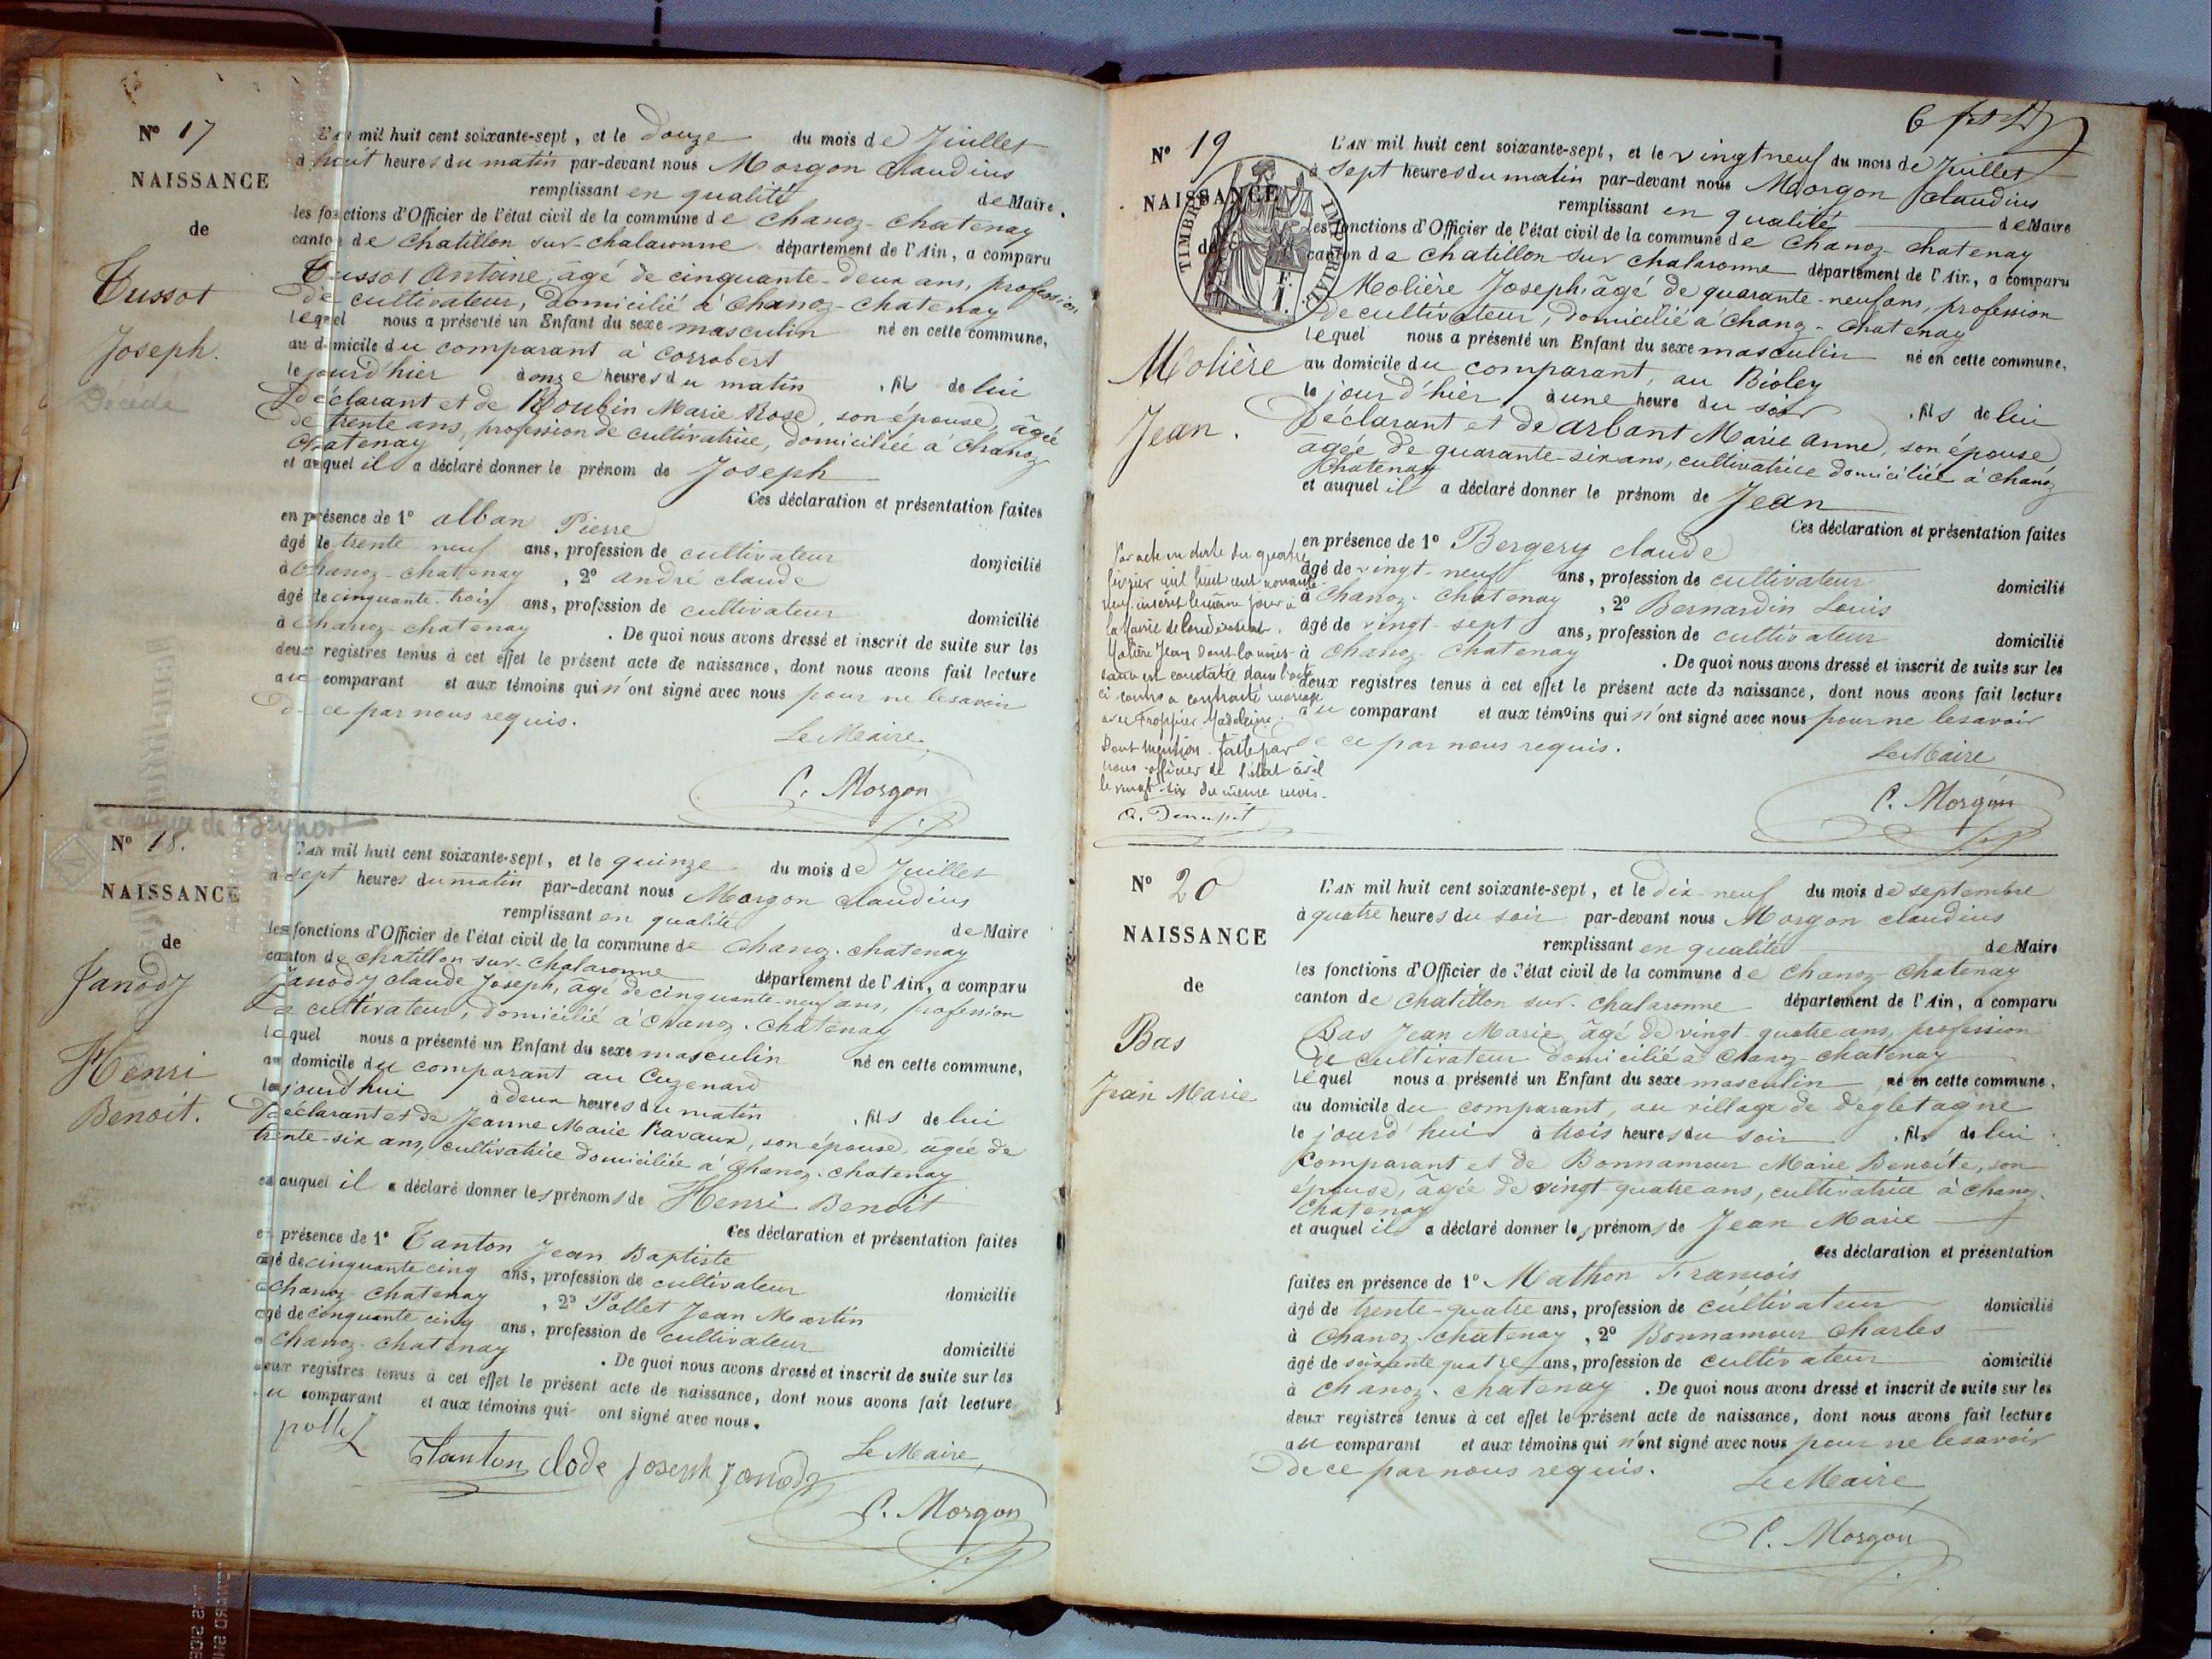 Nº 17
NAISSANCE
de
Tussot
Joseph.
Décédé
L'AN mil huit cent soixante-sept, et le douze du mois de Juillet
à huit heures du matin par-devant nous Morgon Claudius
remplissant en qualité de Maire.
les fonctions d'Officier de l'état civil de la commune de Chanoz-Chatenay
canton de Chatillon sur-chalaronne département de l'Ain, a comparu
Tussot Antoine, âgé de cinquante-deux ans, profession
de cultivateur, domicilié à Chanoz-Chatenay
lequel nous a présenté un Enfant du sexe masculin né en cette commune,
au domicile du comparant à Corrobert
le jourd'hier à onze heures du matin, fils de lui
Déclarant et de Roubin Marie Rose, son épouse, âgée
de trente ans, profession de cultivatrice, domiciliée à Chanoz
Chatenay
et auquel il a déclaré donner le prénom de Joseph
Ces déclaration et présentation faites
en présence de 1º alban Pierre
âgé de trente neuf ans, profession de cultivateur domicilié
à Chanoz-chatenay, 2º andré claude
âgé de cinquante-trois ans, profession de cultivateur domicilié
à Chanoz-chatenay. De quoi nous avons dressé et inscrit de suite sur les
deux registres tenus à cet effet le présent acte de naissance, dont nous avons fait lecture
au comparant et aux témoins qui n'ont signé avec nous pour ne le savoir
de ce par nous requis.
Le Maire
C. Morgon
Nº 18.
NAISSANCE
de
Janody
Henri
Benoit.
L'AN mil huit cent soixante-sept, et le quinze du mois de Juillet
à sept heures du matin par-devant nous Morgon Claudius
remplissant en qualité de Maire
les fonctions d'Officier de l'état civil de la commune de Chanoz-chatenay
canton de chatillon sur-chalaronne département de l'Ain, a comparu
Janody Claude Joseph, âgé de cinquante-neuf ans, profession
de cultivateur, domicilié à Chanoz-Chatenay
lequel nous a présenté un Enfant du sexe masculin né en cette commune,
au domicile du comparant au Cuzenard
le jourd'hui à deux heures du matin, fils de lui
Déclarant et de Jeanne Marie Ravaux, son épouse, âgée de
trente-six ans, cultivatrice domiciliée à Chanoz-chatenay
et auquel il a déclaré donner les prénoms de Henri Benoit
Ces déclaration et présentation faites
en présence de 1º Tanton Jean Baptiste
âgé de cinquante cinq ans, profession de cultivateur domicilié
à chanoz-chatenay, 2º Pollet Jean Martin
âgé de cinquante cinq ans, profession de cultivateur domicilié
à Chanoz-chatenay. De quoi nous avons dressé et inscrit de suite sur les
deux registres tenus à cet effet le présent acte de naissance, dont nous avons fait lecture
au comparant et aux témoins qui ont signé avec nous.
pollet Tanton Clode Joseph Janody
Le Maire,
C. Morgon
Nº 19
NAISSANCE
de
TIMBRE IMPERIAL
F.
1.
Molière
Jean.
L'AN mil huit cent soixante-sept, et le vingt neuf du mois de Juillet
à sept heures du matin par-devant nous Morgon Claudius
remplissant en qualité de Maire
les fonctions d'Officier de l'état civil de la commune de Chanoz-chatenay
canton de chatillon sur chalaronne département de l'Ain, a comparu
Molière Joseph âgé de quarante-neuf ans, profession
de cultivateur, domicilié à Chanoz-Chatenay
lequel nous a présenté un Enfant du sexe masculin né en cette commune,
au domicile du comparant, au Bioley
le jour d'hier, à une heure du soir, fils de lui
Déclarant et de arbant Marie Anne, son épouse
âgée de quarante-six ans, cultivatrice domiciliée à Chanoz
Chatenay
et auquel il a déclaré donner le prénom de Jean
Ces déclaration et présentation faites
en présence de 1º Bergery claude
âgé de vingt-neuf ans, profession de cultivateur domicilié
à Chanoz-Chatenay, 2º Bernardin Louis
âgé de vingt-sept ans, profession de cultivateur domicilié
à Chanoz-Chatenay. De quoi nous avons dressé et inscrit de suite sur les
deux registres tenus à cet effet le présent acte de naissance, dont nous avons fait lecture
au comparant et aux témoins qui n'ont signé avec nous pour ne le savoir
de ce par nous requis.
Le Maire
C. Morgon
Par acte en date du quatre
février mil huit cent nonante
neuf, inscrit le même jour à
la Mairie de
Molière Jean dont la nais-
sance est constatée dans l'acte
ci-contre a contracté mariage
avec Froppier Madeleine.
Dont mention faite par
nous officier de l'état civil
le vingt-six du même mois.
Nº 20
NAISSANCE
de
Bas
Jean Marie
L'AN mil huit cent soixante-sept, et le dix-neuf du mois de septembre
à quatre heures du soir par-devant nous Morgon claudius
remplissant en qualité de Maire
les fonctions d'Officier de l'état civil de la commune de Chanoz-Chatenay
canton de Chatillon sur-chalaronne département de l'Ain, a comparu
Bas Jean Marie, âgé de vingt quatre ans, profession
de cultivateur domicilié à Chanoz-chatenay
lequel nous a présenté un Enfant du sexe masculin né en cette commune,
au domicile du comparant, au village de Degletagne
le jourd'hui à trois heures du soir, fils de lui
Comparant et de Bonnamour Marie Benoite, son
épouse, âgée de vingt-quatre ans, cultivatrice à Chanoz-
Chatenay
et auquel il a déclaré donner les prénoms de Jean Marie
Ces déclaration et présentation
faites en présence de 1º Mathon François
âgé de trente-quatre ans, profession de cultivateur domicilié
à Chanoz-chatenay, 2º Bonnamour Charles
âgé de soixante quatre ans, profession de cultivateur domicilié
à Chanoz-chatenay. De quoi nous avons dressé et inscrit de suite sur les
deux registres tenus à cet effet le présent acte de naissance, dont nous avons fait lecture
au comparant et aux témoins qui n'ont signé avec nous pour ne le savoir
de ce par nous requis.
Le Maire
C. Morgon